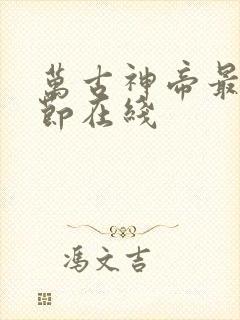 萬古神帝最
節在綫
馮文吉